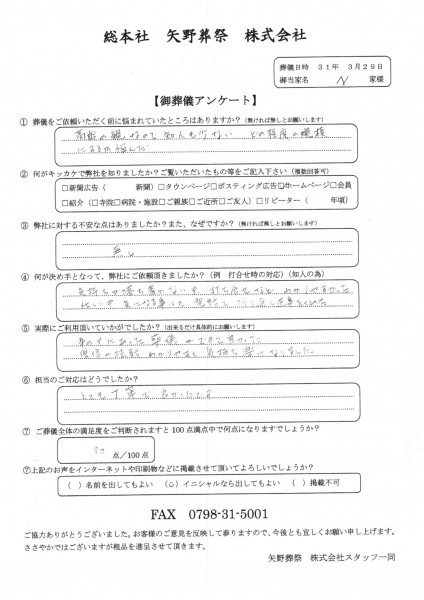 総本社 矢野葬祭 株式会社
葬儀日時 31年 3月29日
御当家名 N 家様
【御葬儀アンケート】
① 葬儀をご依頼いただく前に悩まれていたところはありますか？（無ければ無しとお願いします）
高齢の親なので知人も少ない どの程度の規模
にするか悩んだ
② 何がキッカケで弊社を知りましたか？ご覧いただいたもの等をご記入下さい（複数回答可）
□新聞広告（ 新聞）□タウンページ□ポスティング広告□ホームページ□会員
□紹介（□寺院□病院・施設□ご親族□ご近所□ご友人）□リピーター（ 年頃）
③ 弊社に対する不安な点はありましたか？また、なぜですか？（無ければ無しとお願いします）
無し
④ 何が決め手となって、弊社にご依頼頂きましたか？（例 打合せ時の対応）（知人の為）
気持ちが落ち着かない中
⑤ 実際にご利用頂いていかがでしたか？（出来るだけ具体的にお願いします）
身の丈にあった葬儀ができて良かった
わかりやすく気持ち楽になりました。
⑥ 担当のご対応はどうでしたか？
とても丁寧で良かったです
⑦ ご葬儀全体の満足度をご判断されますと100点満点中で何点になりますでしょうか？
90 点/100点
⑦上記のお声をインターネットや印刷物などに掲載させて頂いてよろしいでしょうか？
（ ）名前を出してもよい （○）イニシャルなら出してもよい （ ）掲載不可
FAX 0798-31-5001
ご協力ありがとうございました。お客様のご意見を反映して参りますので、今後とも宜しくお願い申し上げます。
ささやかではございますが粗品を進呈させて頂きます。
矢野葬祭 株式会社スタッフ一同